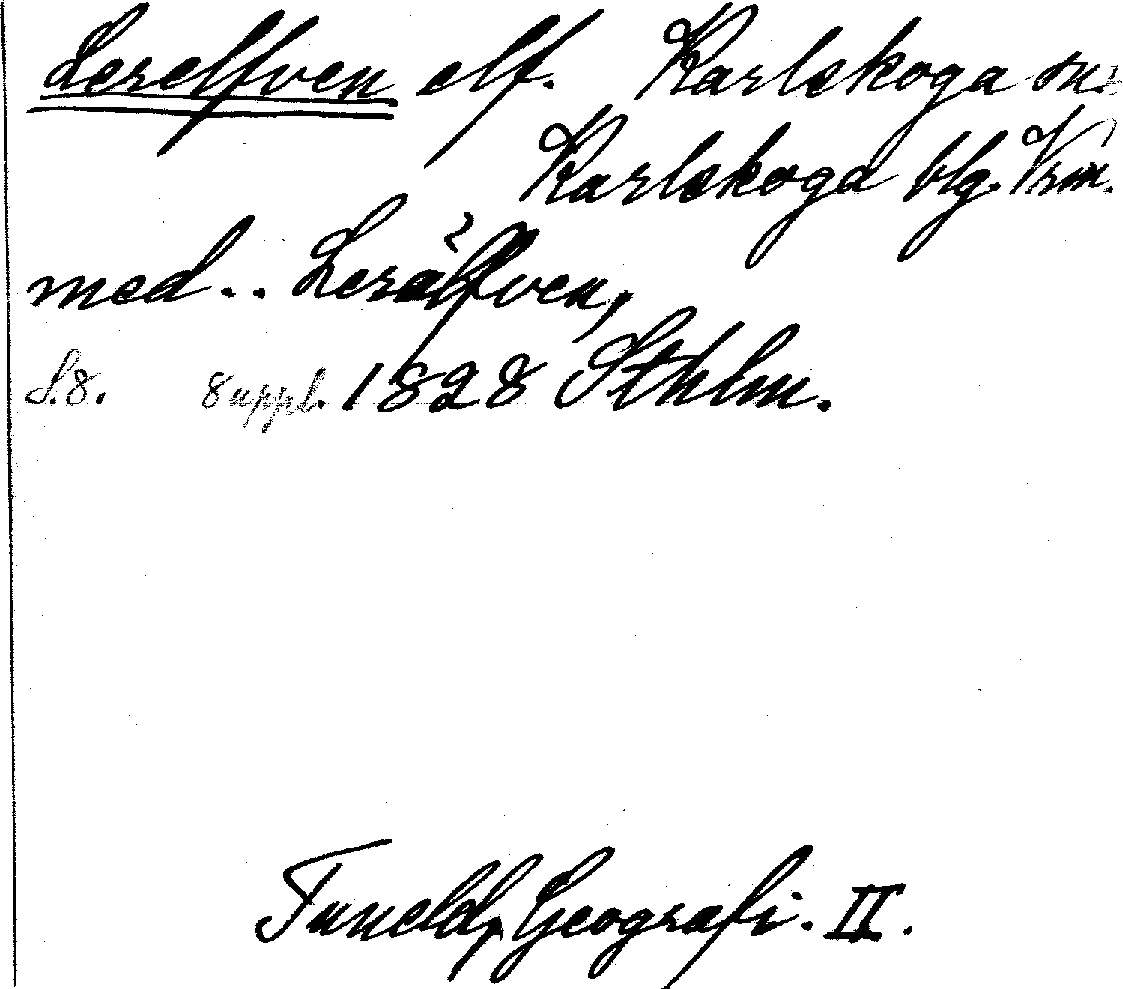 Lerelfven elf. Karlskoga sn.
Karlskoga blg. Vrm.
med.. Lerälfven,
S.8. suppl. 1828 Sthlm.
Tuneld, Geografi. II.